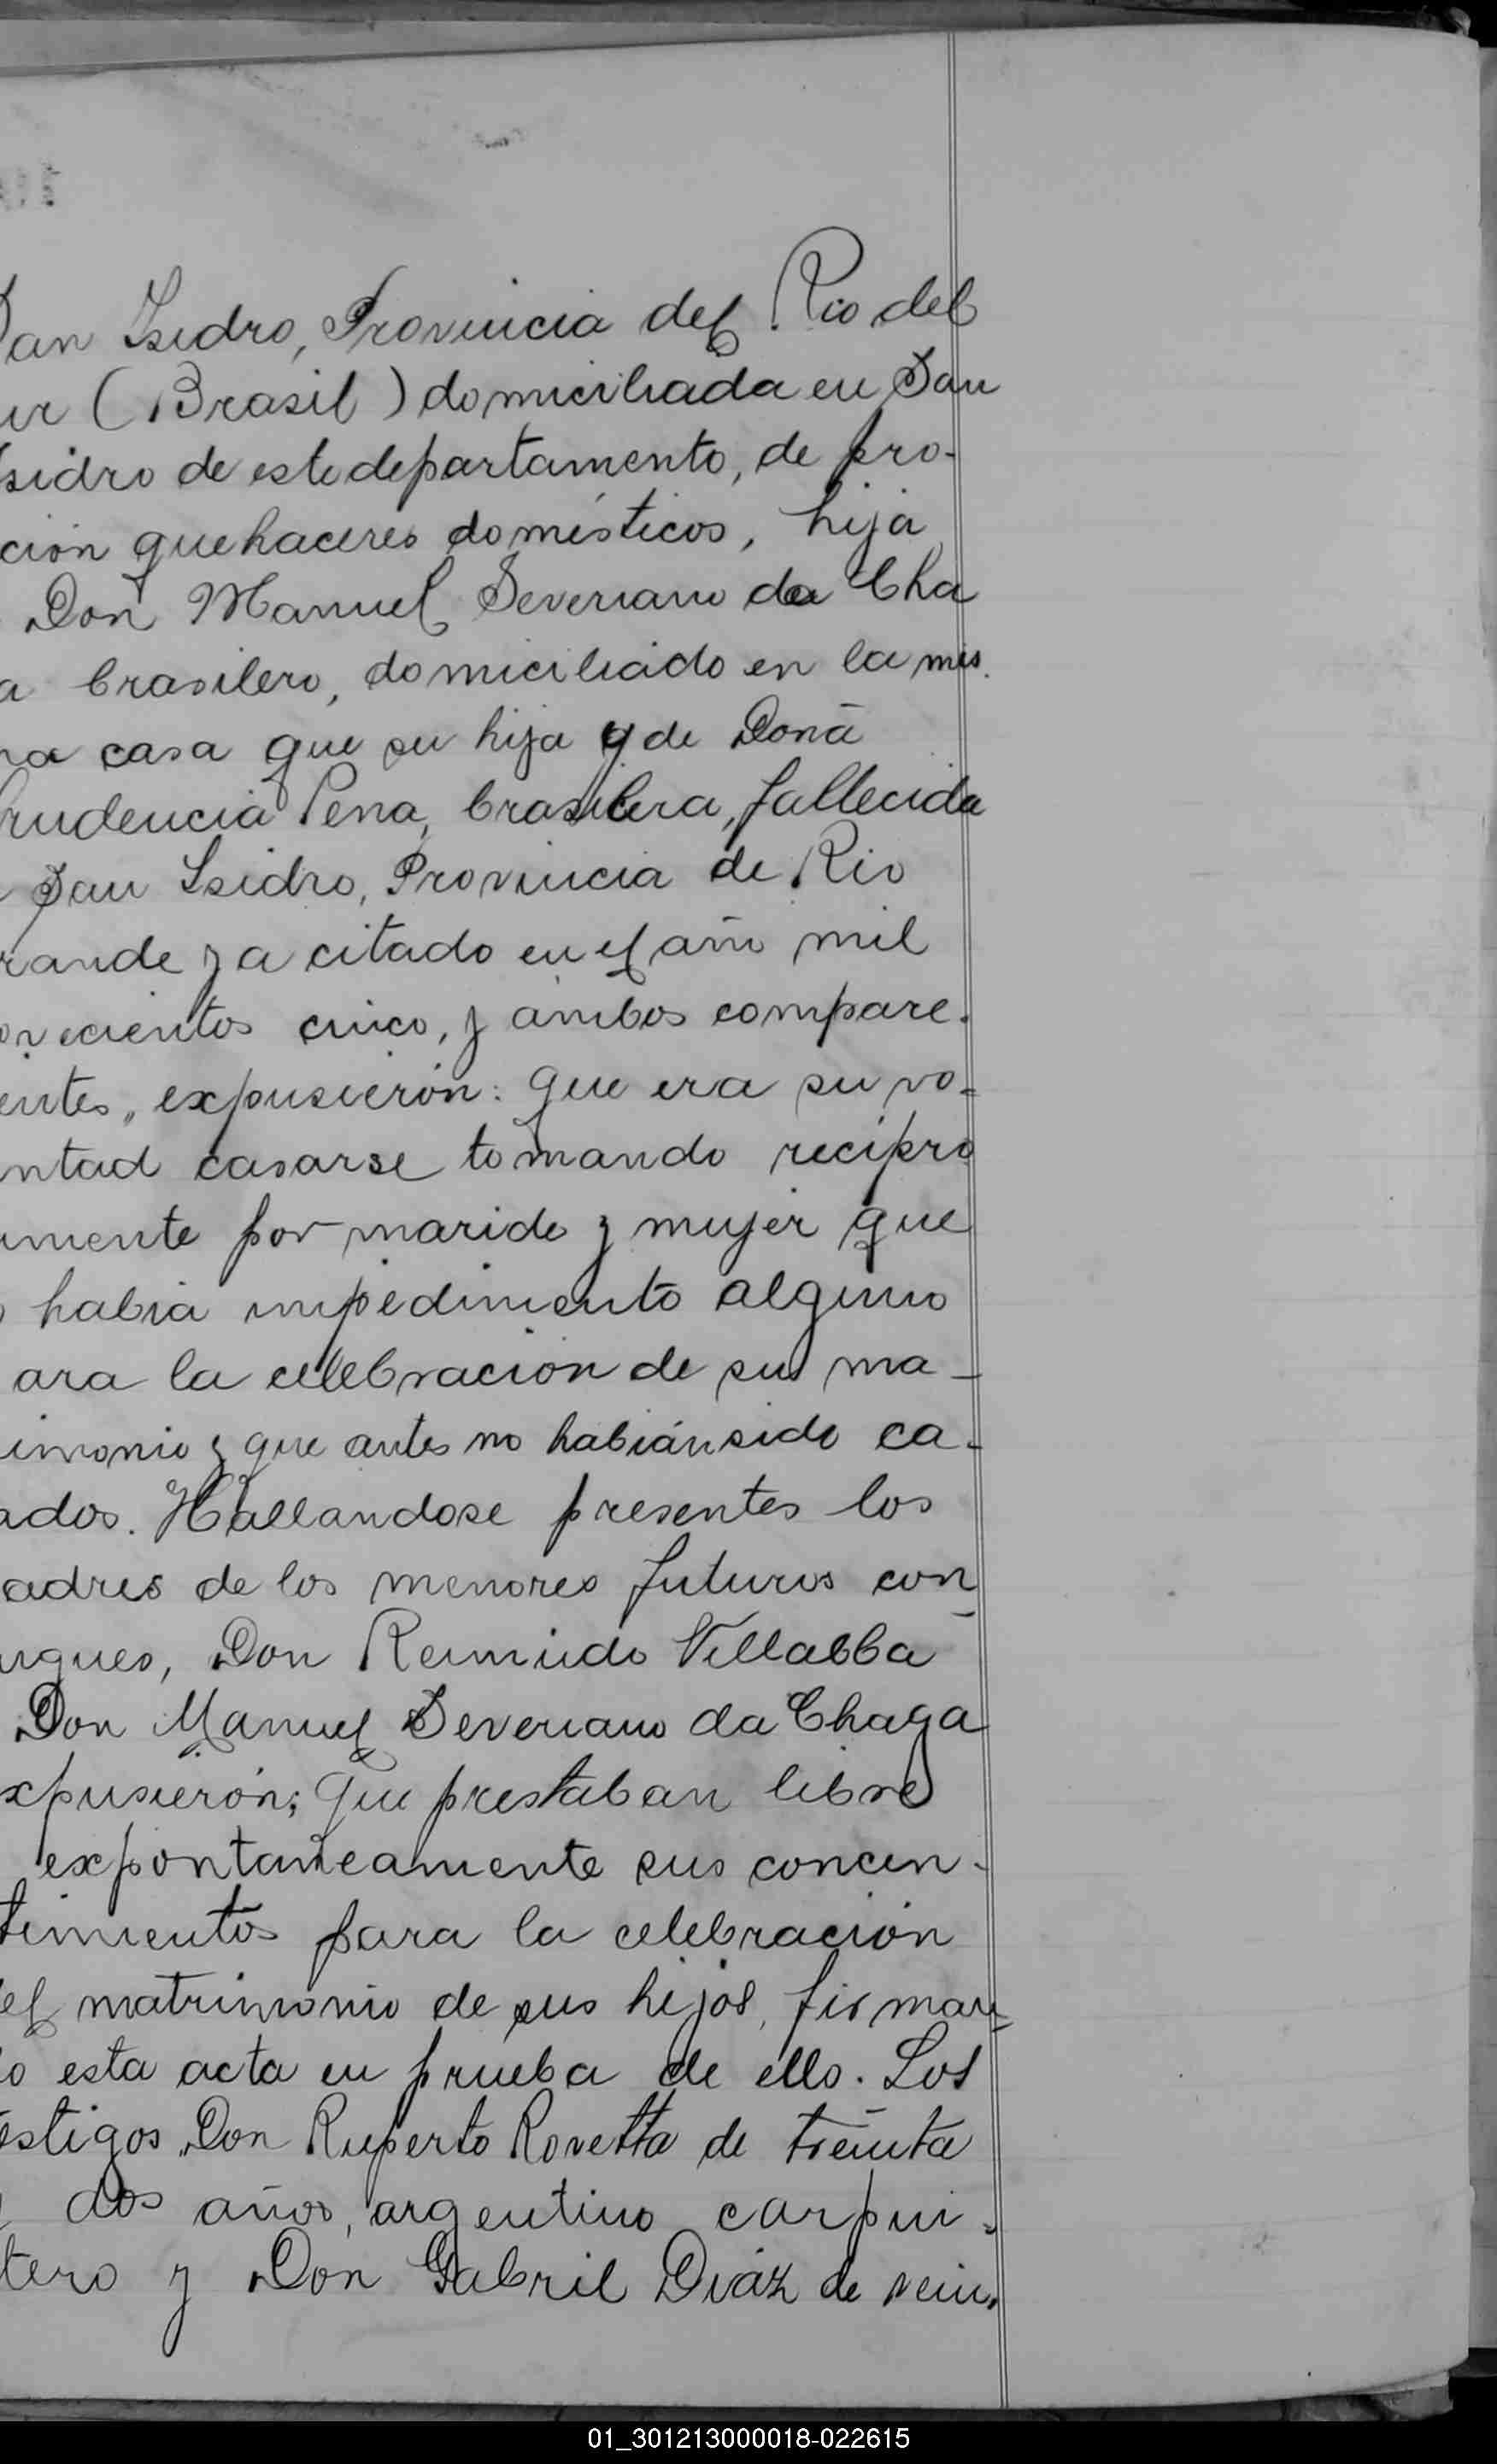 San Isidro, Provincia del Rio del
ur (Brasil) domiciliada en San
sidro de este departamento, de pro-
ción quehaceres domésticos, hija
Don Manuel Severiano da Cha
a brasilero, domiciliado en la mis.
na casa que su hija y de Doña
rudencia Pena, brasilera, fallecida
San Isidro, Provincia de Rio
rande ya citado en el año mil
ovecientos cinco, y ambos compare.
entes, expusierón: que era su vo-
ntad casarse tomando recípro
amente por marido y mujer que
o habia impedimento alguno
ara la celebración de su ma-
imonio y que antes no habián sido ca-
ados. Hallandose presentes los
adres de los menores futuros con
ugues, Don Reimundo Villalba
Don Manuel Severiano da Chaga
xpusierón; que prestaban libre
expontaneamente sus concen-
timientos para la celebración
el matrimonio de sus hijos, firman-
o esta acta en prueba de ello. Los
estigos Don Ruperto Rovetta de treinta
y dos años, argentino carpin-
tero y Don Gabril Diáz de vein.
01_301213000018-022615